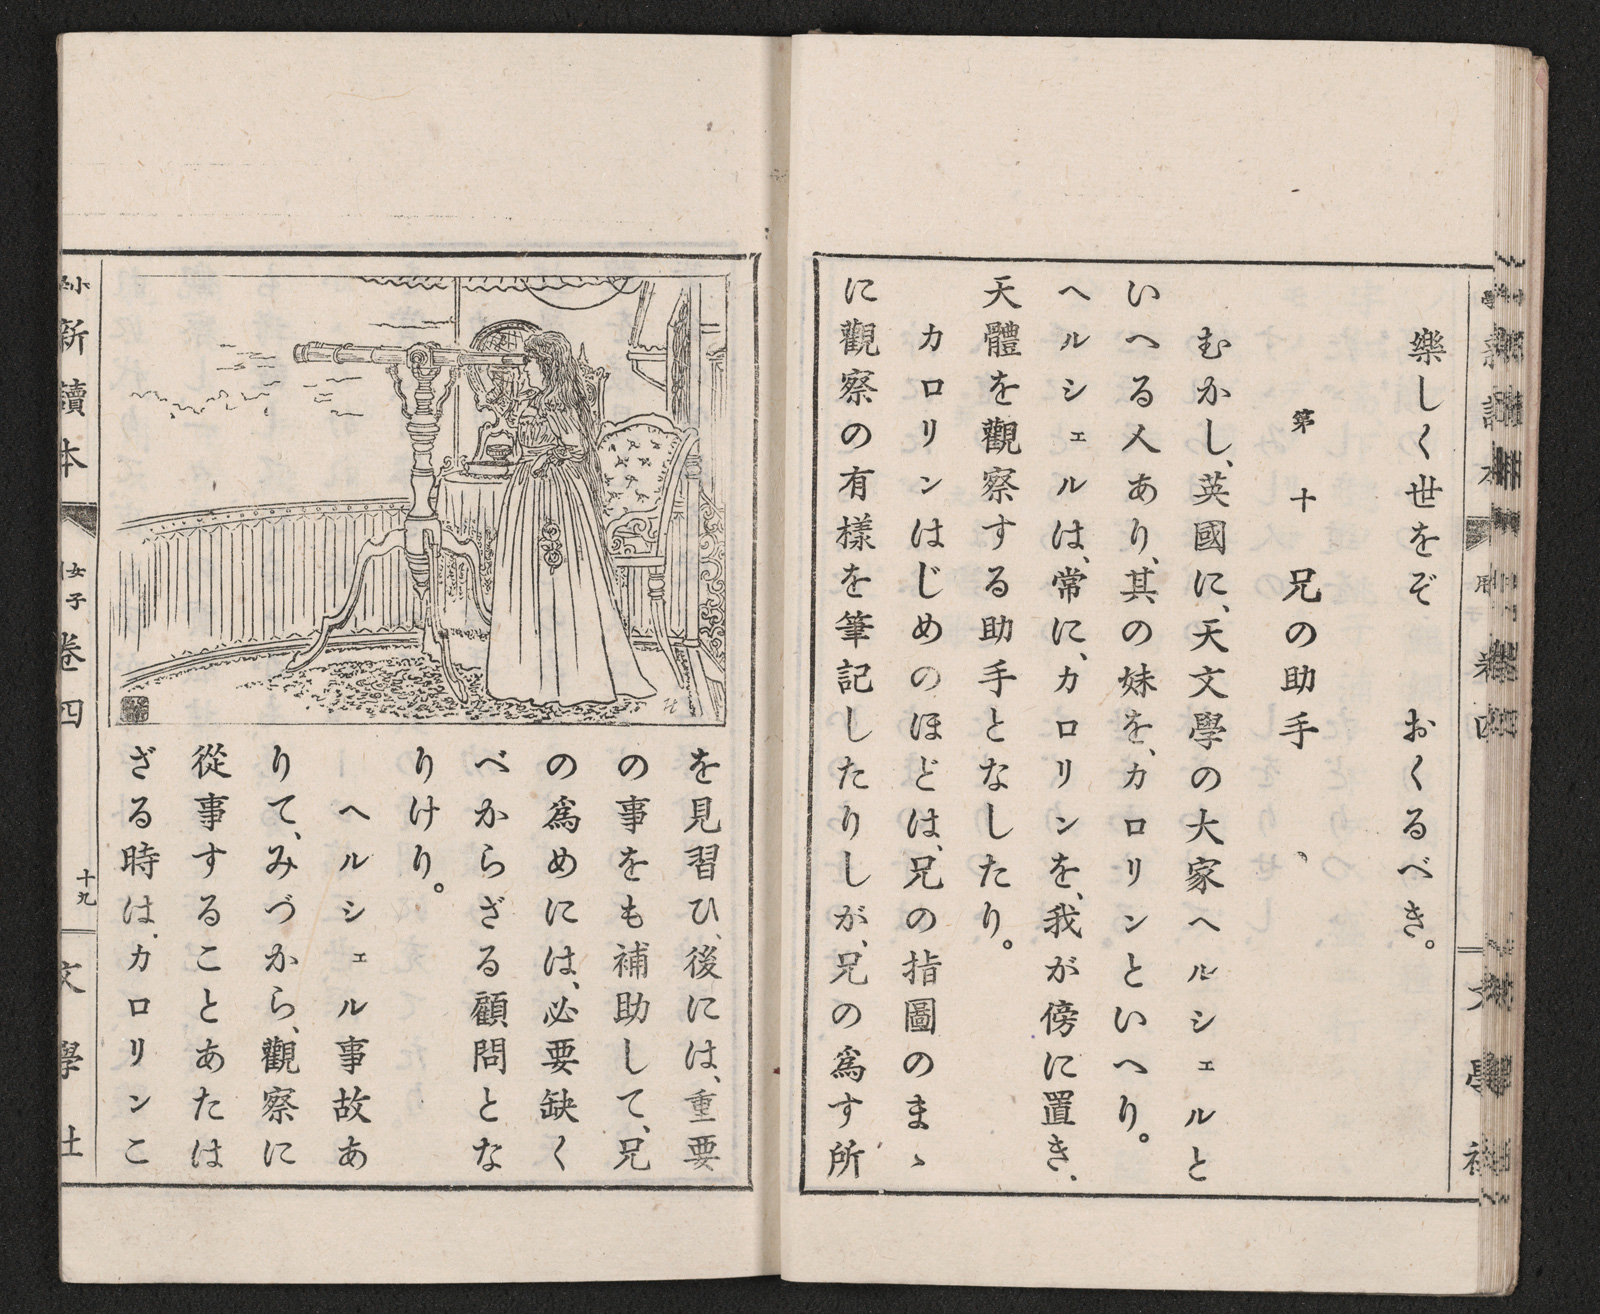 樂しく世をぞ　おくるべき。
第十　兄の助手
むかし、英國に、天文學の大家ヘルシェルと
いへる人あり、其の妹を、カロリンといへり。
ヘルシェルは、常に、カロリンを、我が傍に置き、
天體を觀察する助手となしたり。
カロリンはじめのほどは、兄の指圖のまゝ
に觀察の有樣を筆記したりしが、兄の爲す所
を見習ひ、後には、重要
の事をも補助して、兄
の爲めには、必要缺く
べからざる顧問とな
りけり。
ヘルシェル事故あ
りて、みづから、觀察に
從事することあたは
ざる時は、カロリンこ
新讀本
女子
卷四
十九
文學社